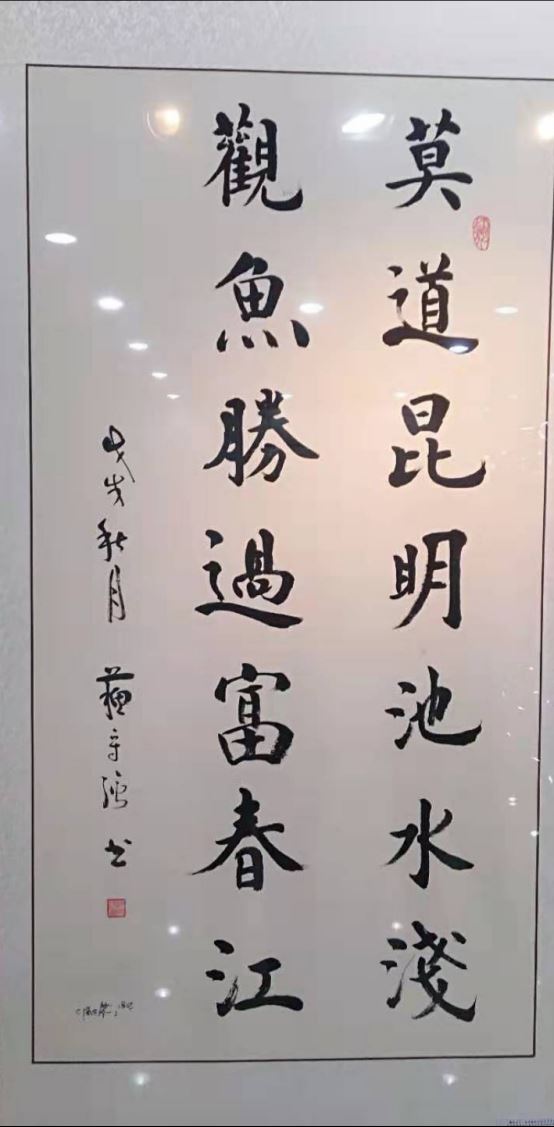 莫道昆明池水淺
觀魚勝過富春江
戊戌秋月 蘇守強 书